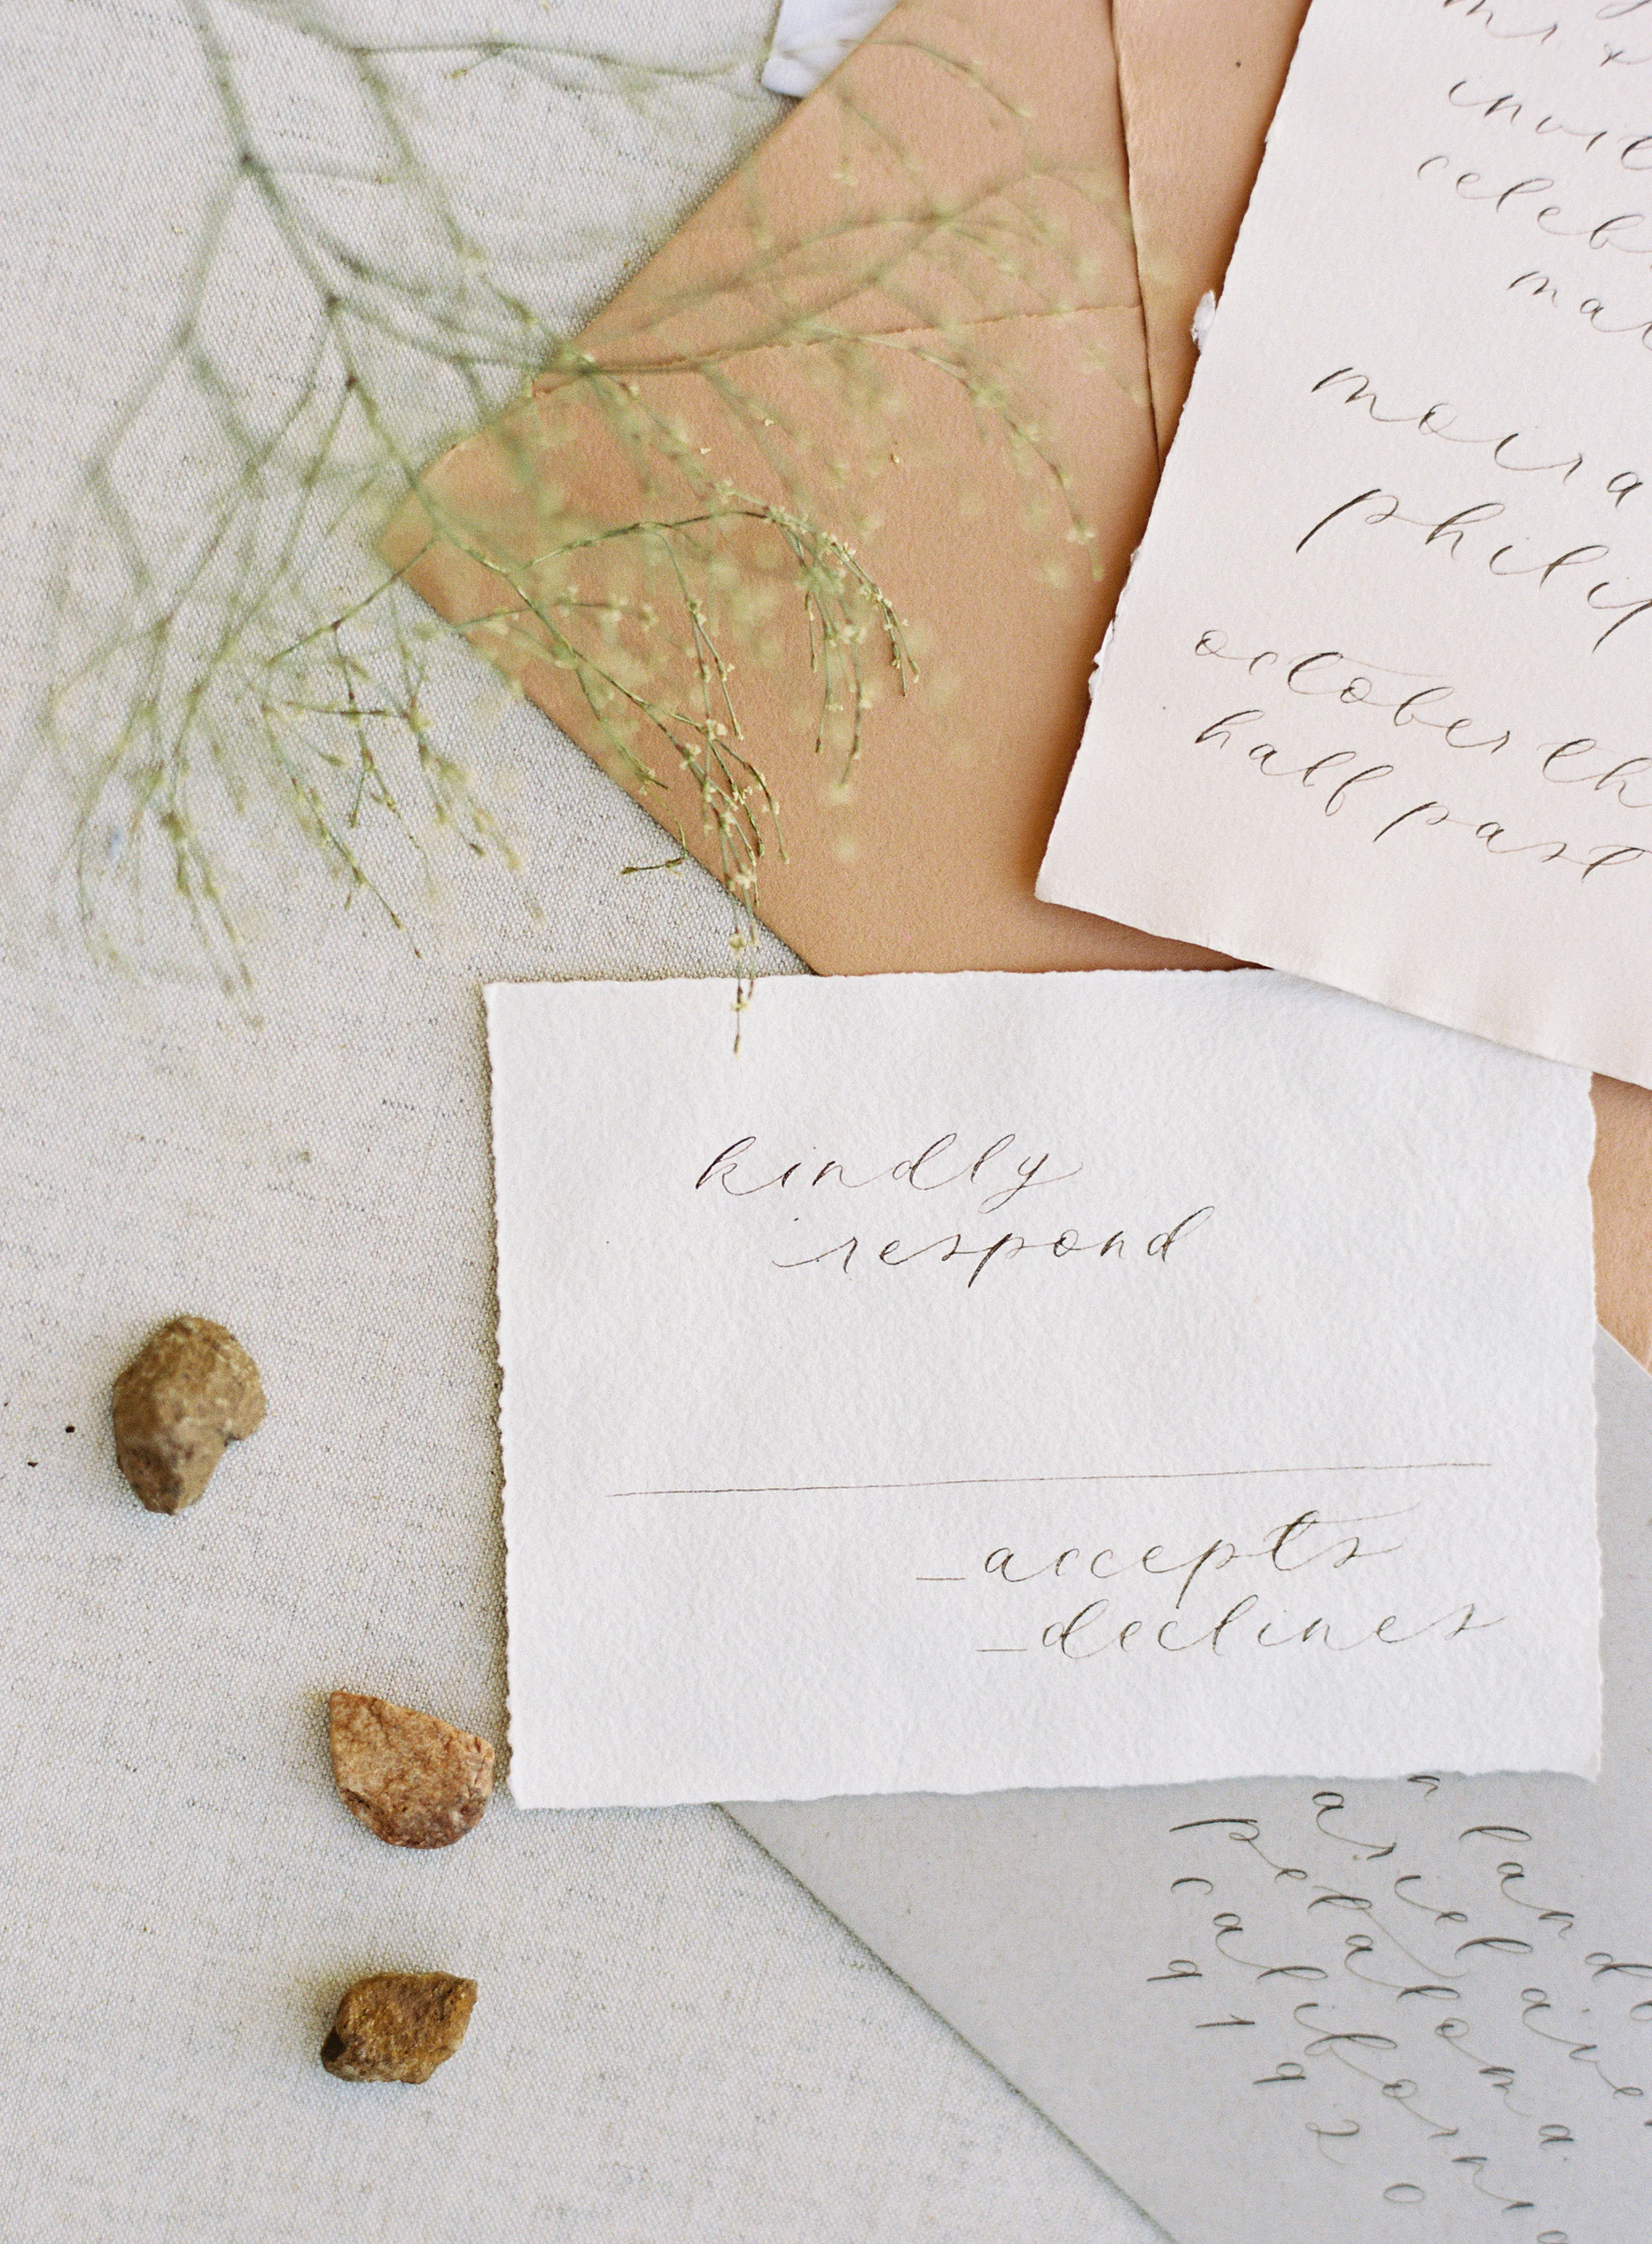 mr &
invit
celeb
mar
moira
philip
october th
half past
kindly
respond
_accepts
_declines
n land
ariel ave
petaloma
californi
9 1 9 2 0